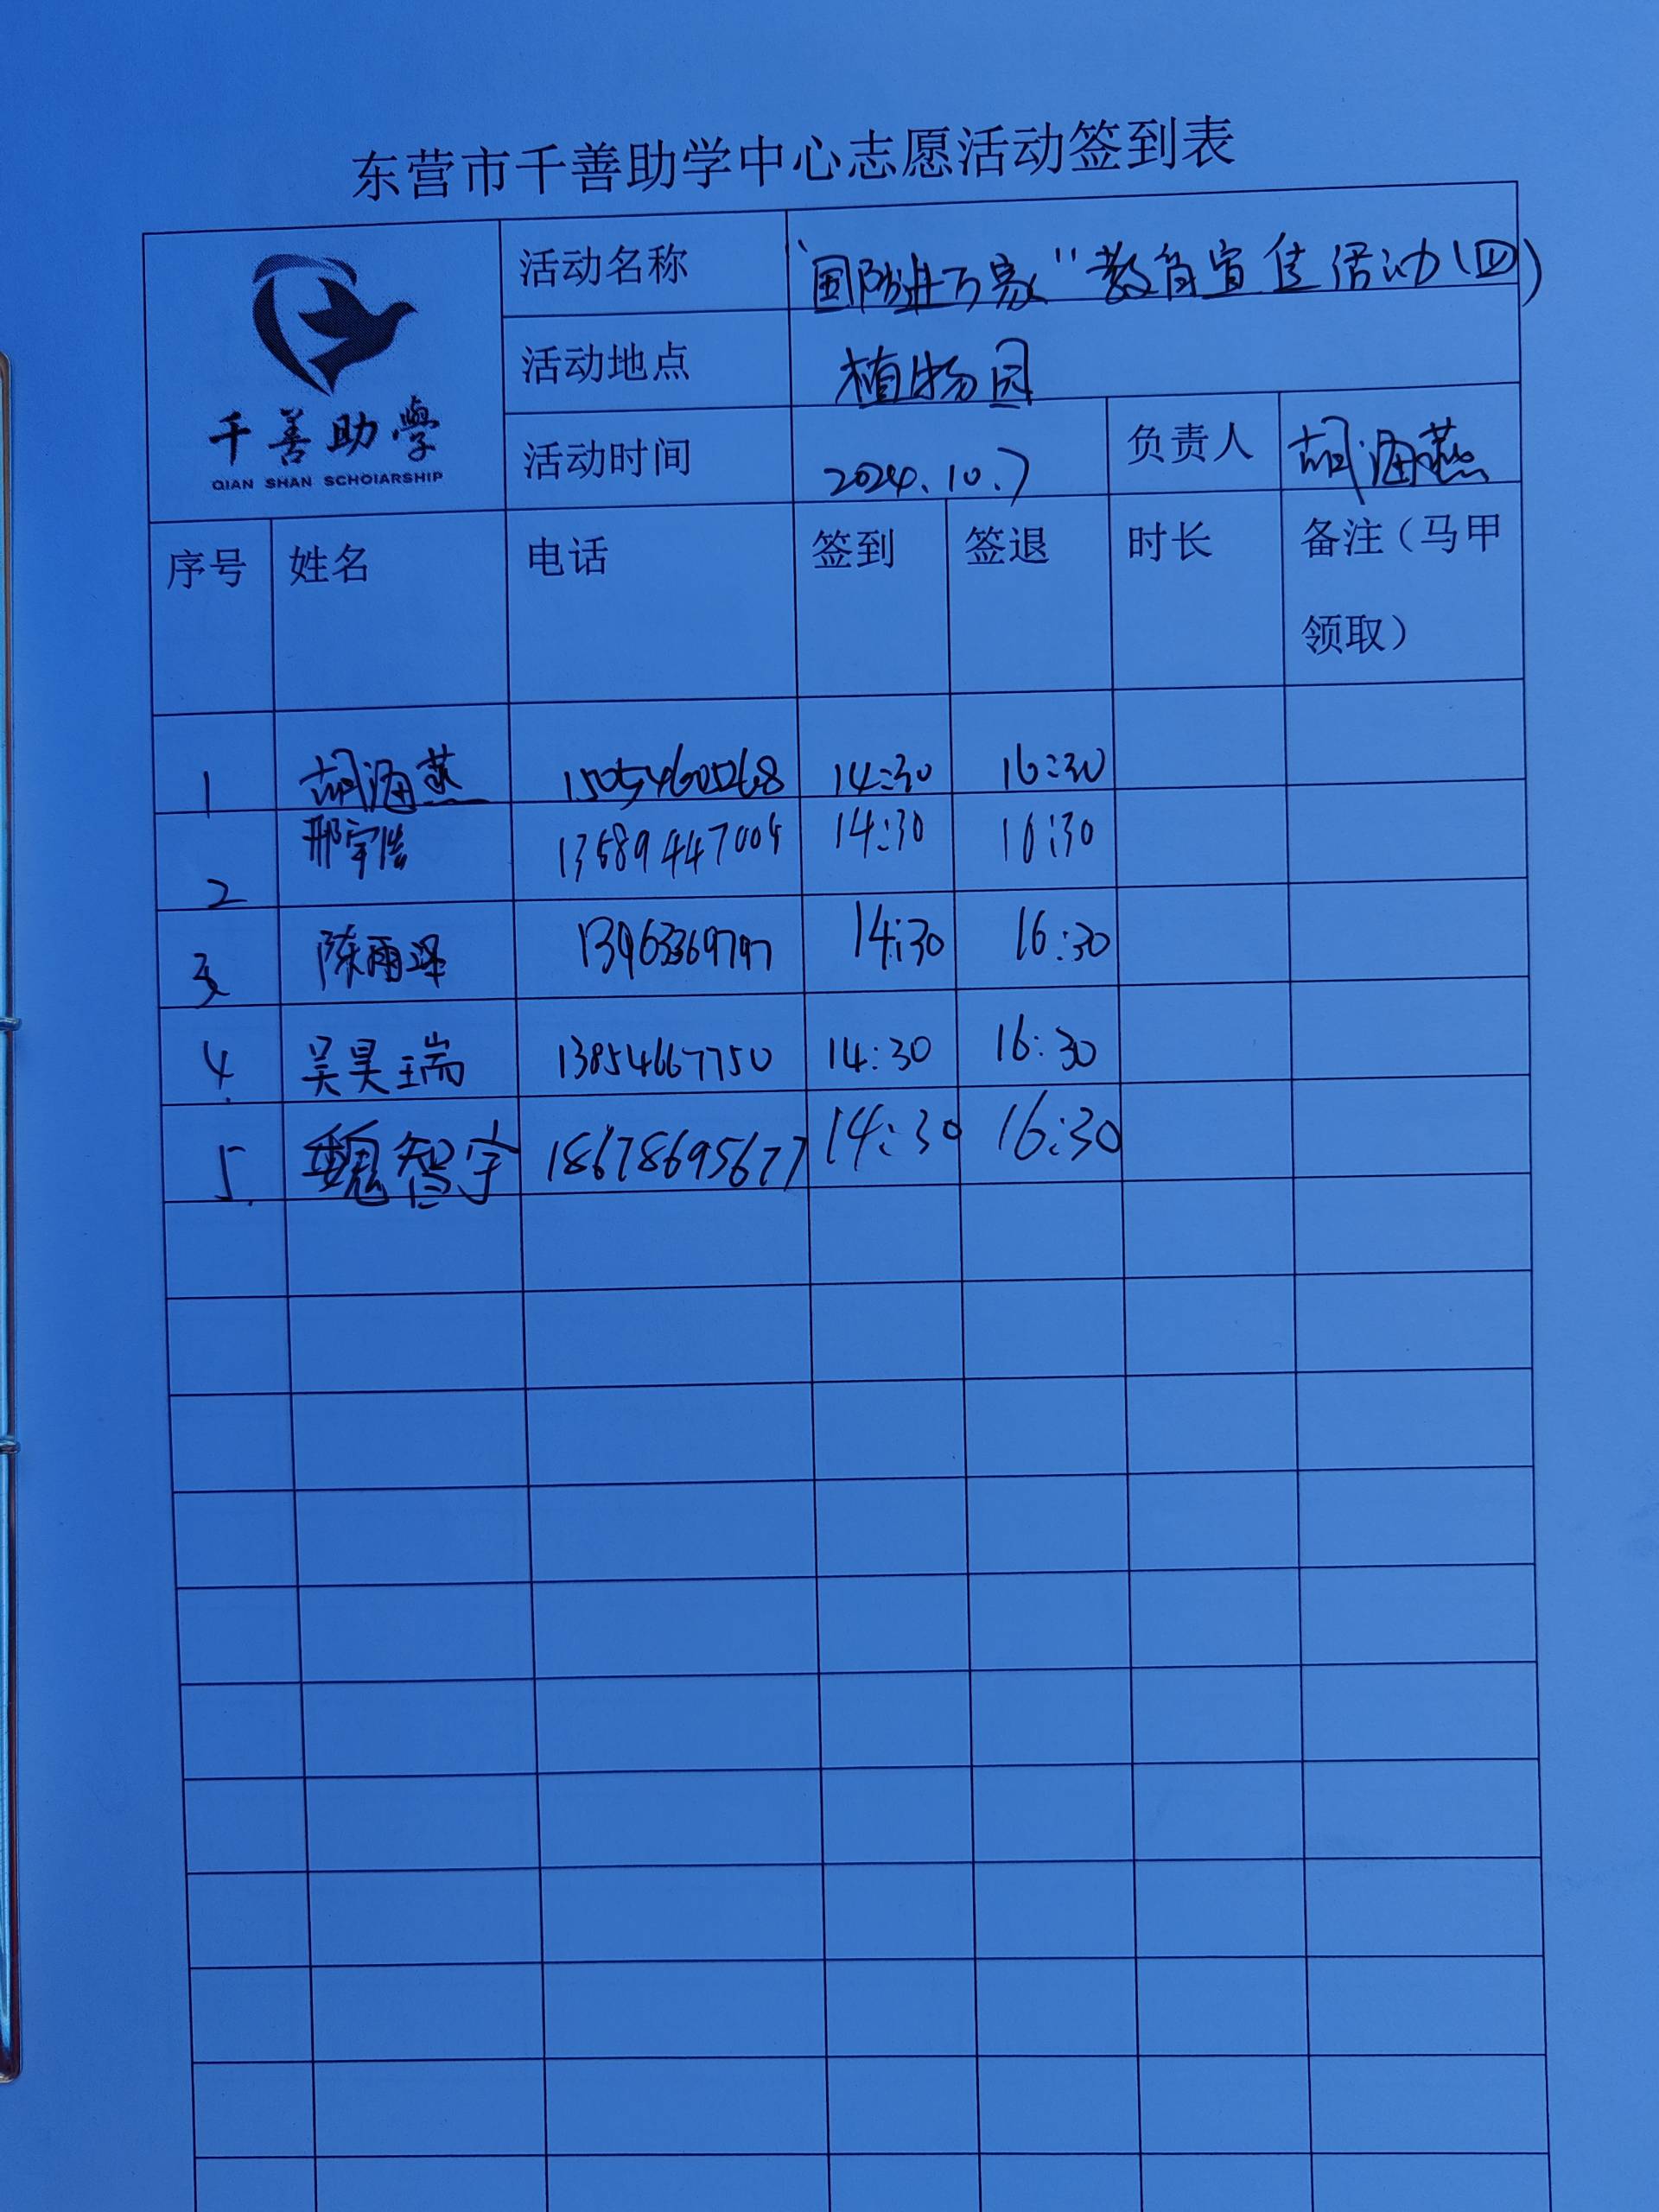 东营市千善助学中心志愿活动签到表
千善助學
QIAN SHAN SCHOIARSHIP
活动名称 "国防进万家"教育宣传活动(四)
活动地点 植物园
活动时间 2024.10.7 负责人 胡海燕
序号 姓名 电话 签到 签退 时长 备注（马甲
领取）
1 胡海燕 14:30 16:30
2 邢宇浩 14:30 16:30
3 陈雨泽 14:30 16:30
4. 吴昊瑞 13854667750 14:30 16:30
5. 魏智宇 18678695677 14:30 16:30